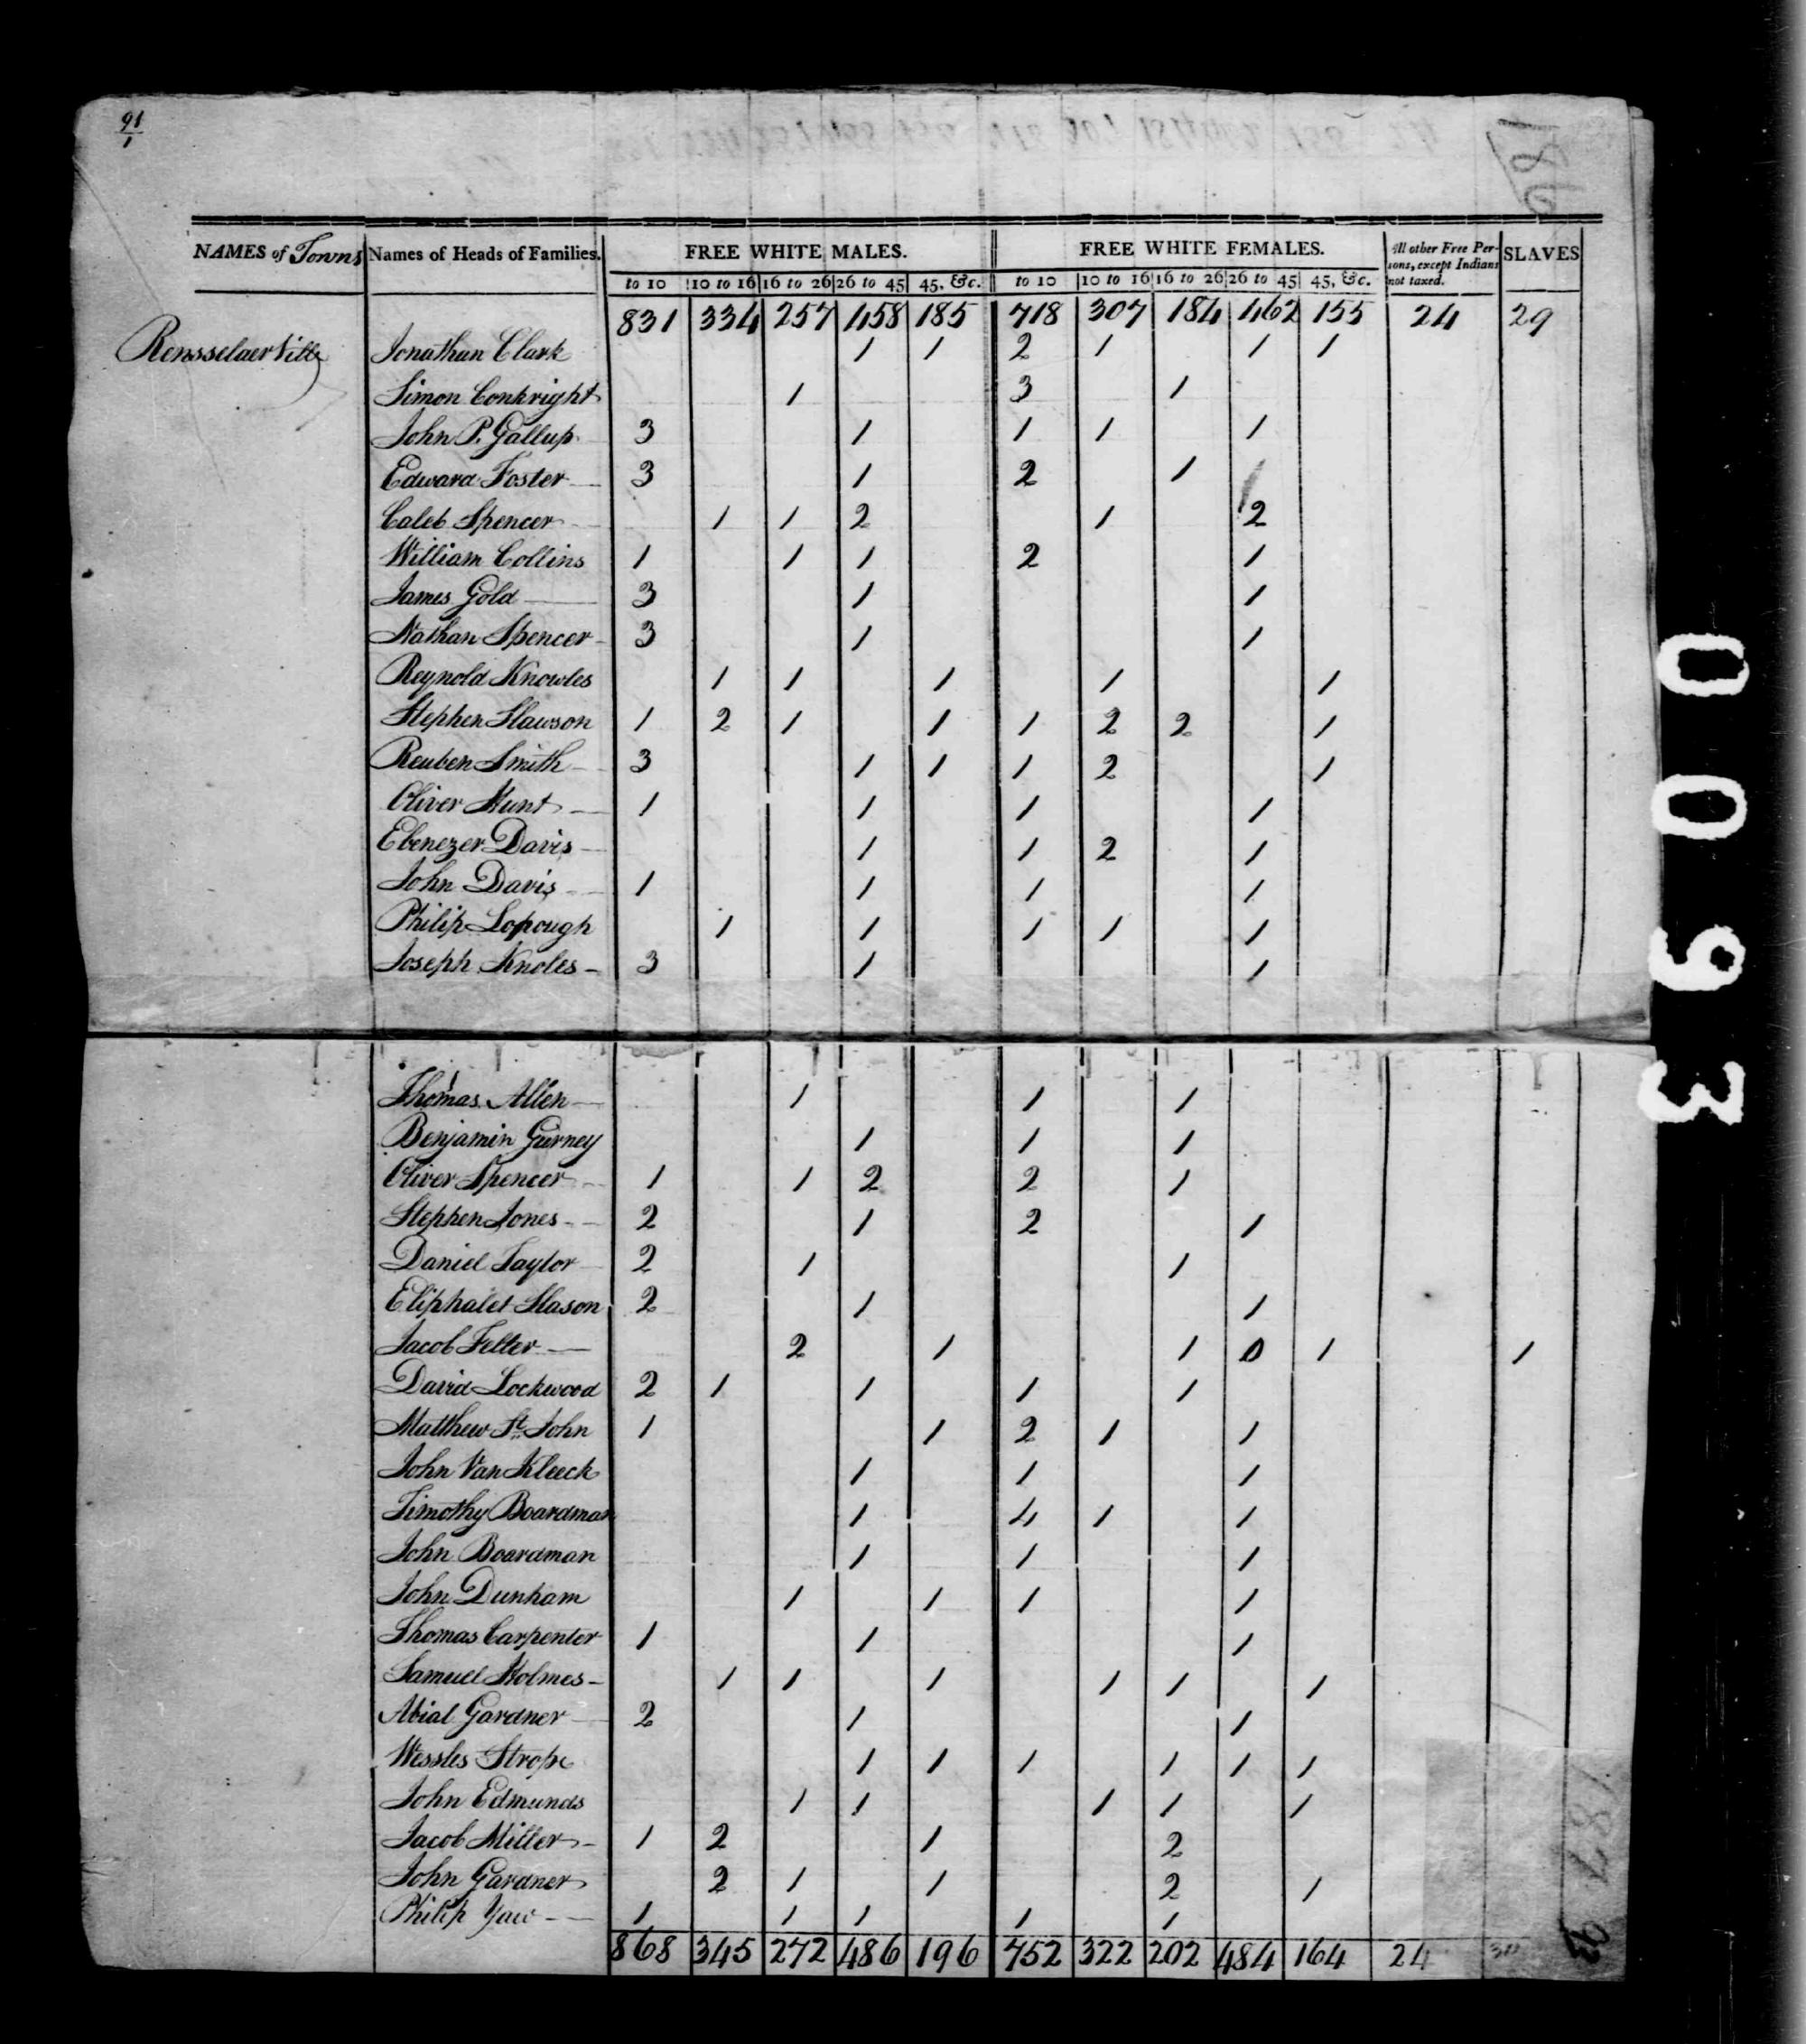 91
1
186
NAMES of Towns Names of Heads of Families. FREE WHITE MALES. FREE WHITE FEMALES. All other Free Persons, except Indians not taxed. SLAVES
to 10 10 to 16 16 to 26 26 to 45 45, &c. to 10 10 to 16 16 to 26 26 to 45 45, &c.
831 334 257 458 185 718 307 184 462 155 24 29
RensselaerVille Jonathan Clark 1 1 2 1 1 1
Simon Conkright 1 3 1
John P. Gallup 3 1 1 1 1
Edward Foster 3 1 2 1
Caleb Spencer 1 1 2 1 2
William Collins 1 1 1 2 1
James Gold 3 1 1
Nathan Spencer 3 1 1
Reynold Knowles 1 1 1 1 1
Stephen Slawson 1 2 1 1 1 2 2 1
Reuben Smith 3 1 1 1 2 1
Oliver Hunt 1 1 1 1
Ebenezer Davis 1 1 2 1
John Davis 1 1 1 1
Philip Lopough 1 1 1 1 1
Joseph Knoles 3 1 1
Thomas Allen 1 1 1
Benjamin Gurney 1 1 1
Oliver Spencer 1 1 2 2 1
Stephen Jones 2 1 2 1
Daniel Taylor 2 1 1
Eliphalet Slason 2 1 1
Jacob Felter 2 1 1 0 1 1
David Lockwood 2 1 1 1 1
Matthew St. John 1 1 2 1 1
John Van Kleeck 1 1 1
Timothy Boardman 1 4 1 1
John Boardman 1 1 1
John Dunham 1 1 1 1
Thomas Carpenter 1 1 1
Samuel Holmes 1 1 1 1 1 1
Abial Gardner 2 1 1
Wessles Strope 1 1 1 1 1 1
John Edmunds 1 1 1 1 1
Jacob Miller 1 2 1 2
John Gardner 2 1 1 2 1
Philip Yaw 1 1 1 1 1
868 345 272 486 196 752 322 202 484 164 24 30
0093
187